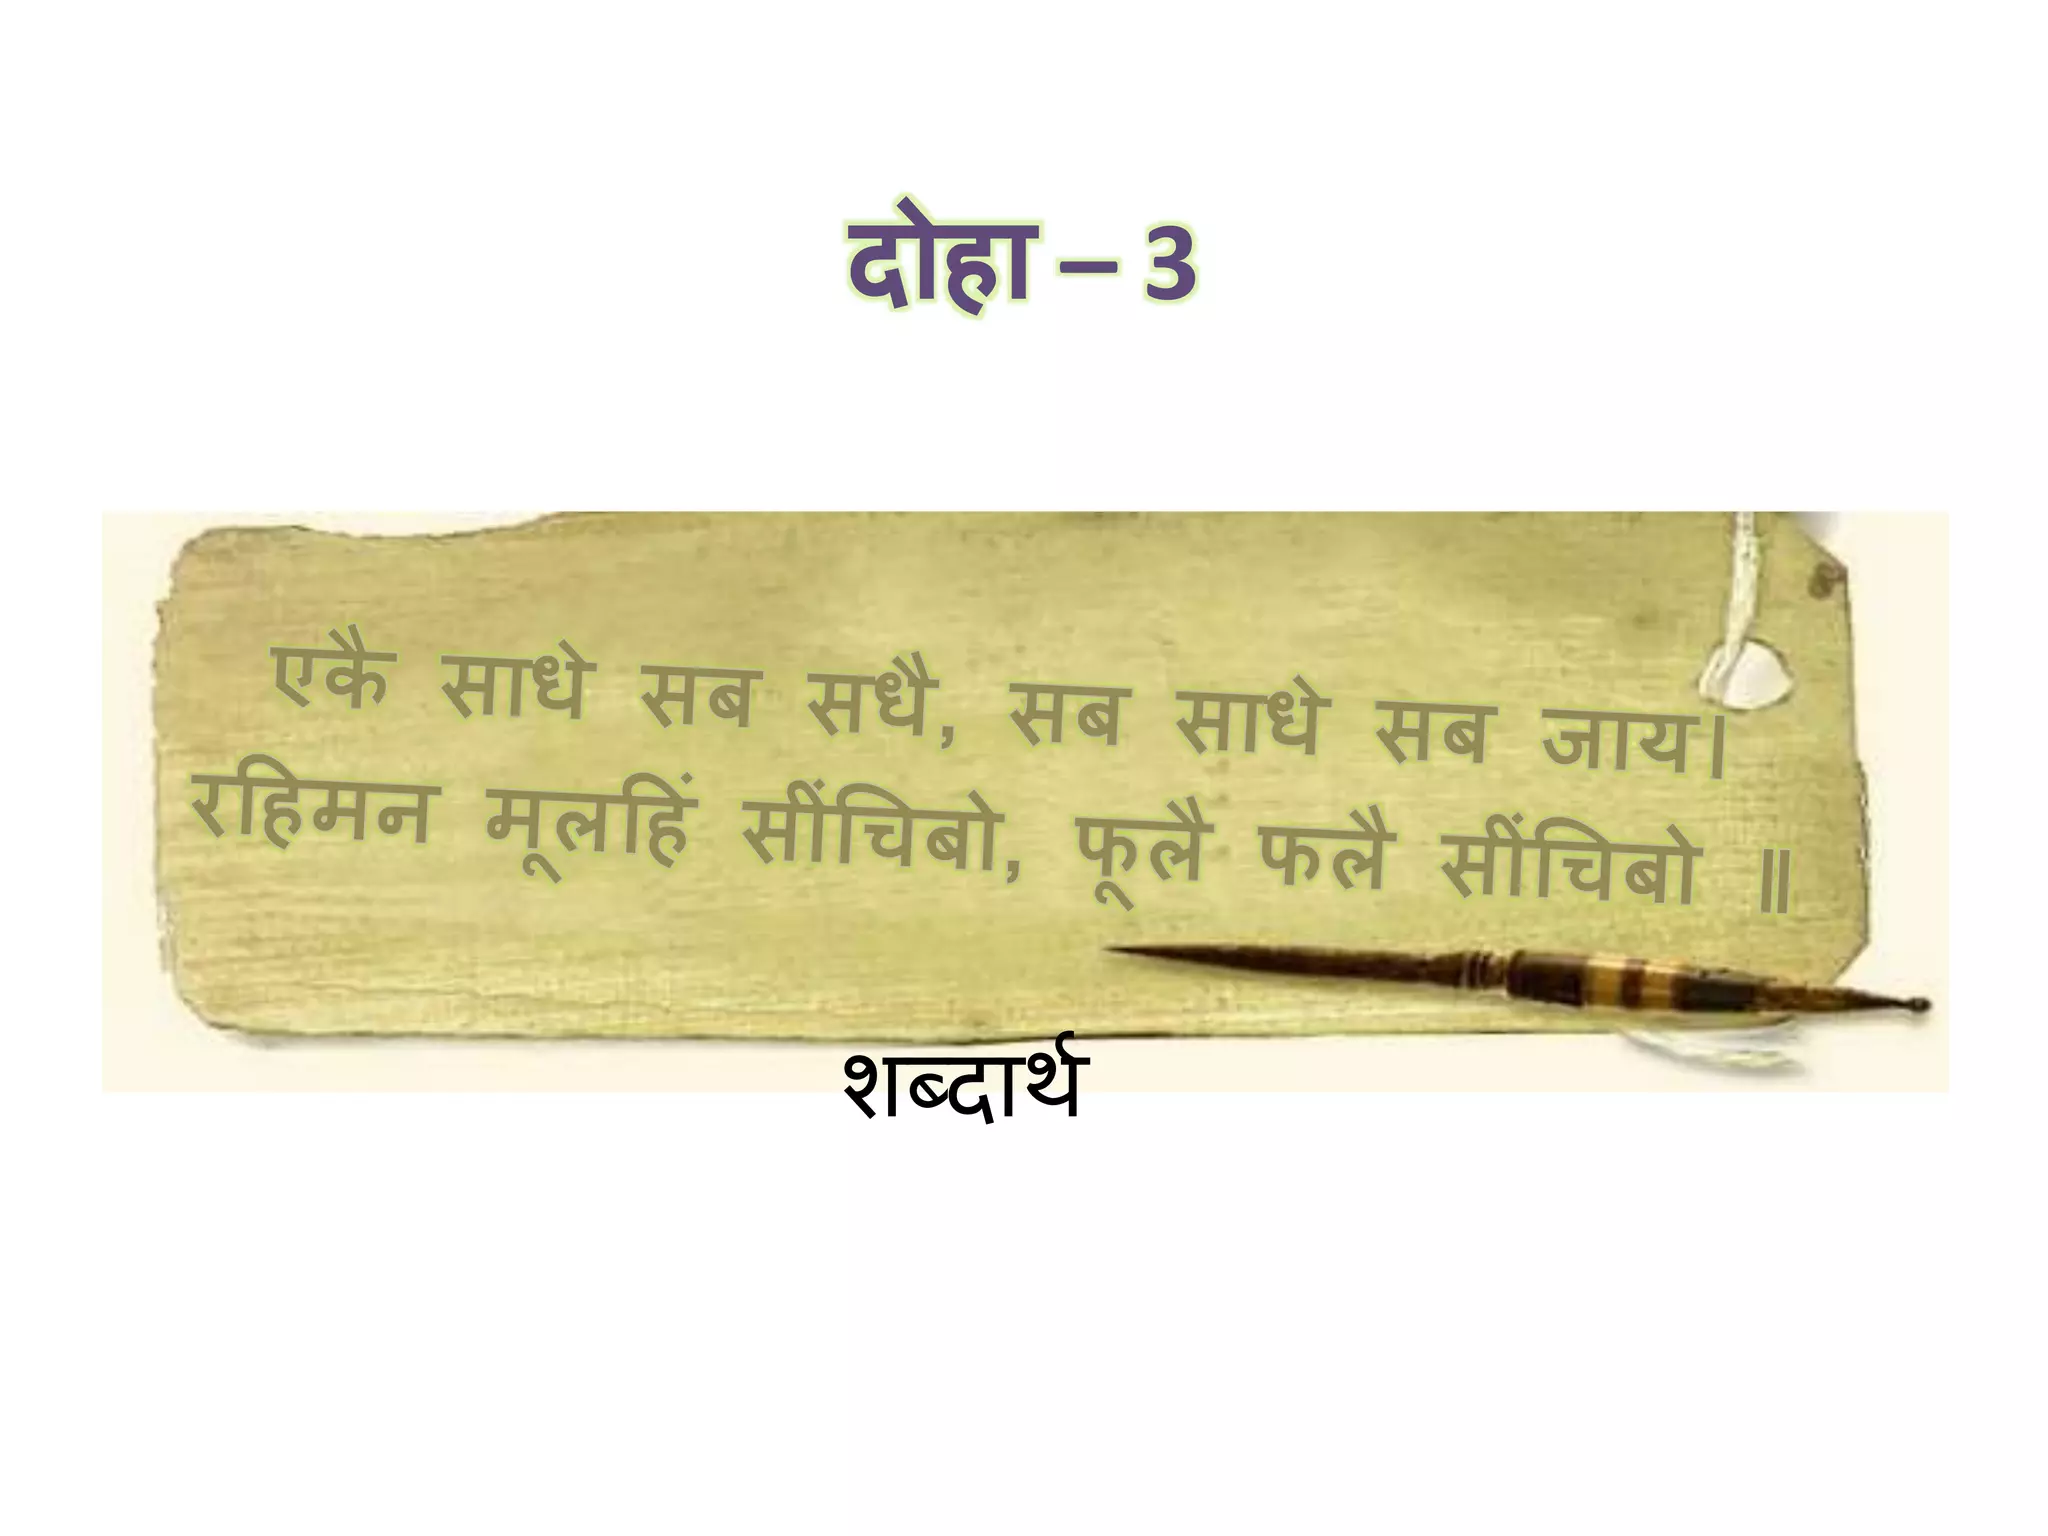 दोहा – 3
एकै साधे सब सधै, सब साधे सब जाय।
रहिमन मूलहिं सींचिबो, फूलै फलै सींचिबो ॥
शब्दार्थ